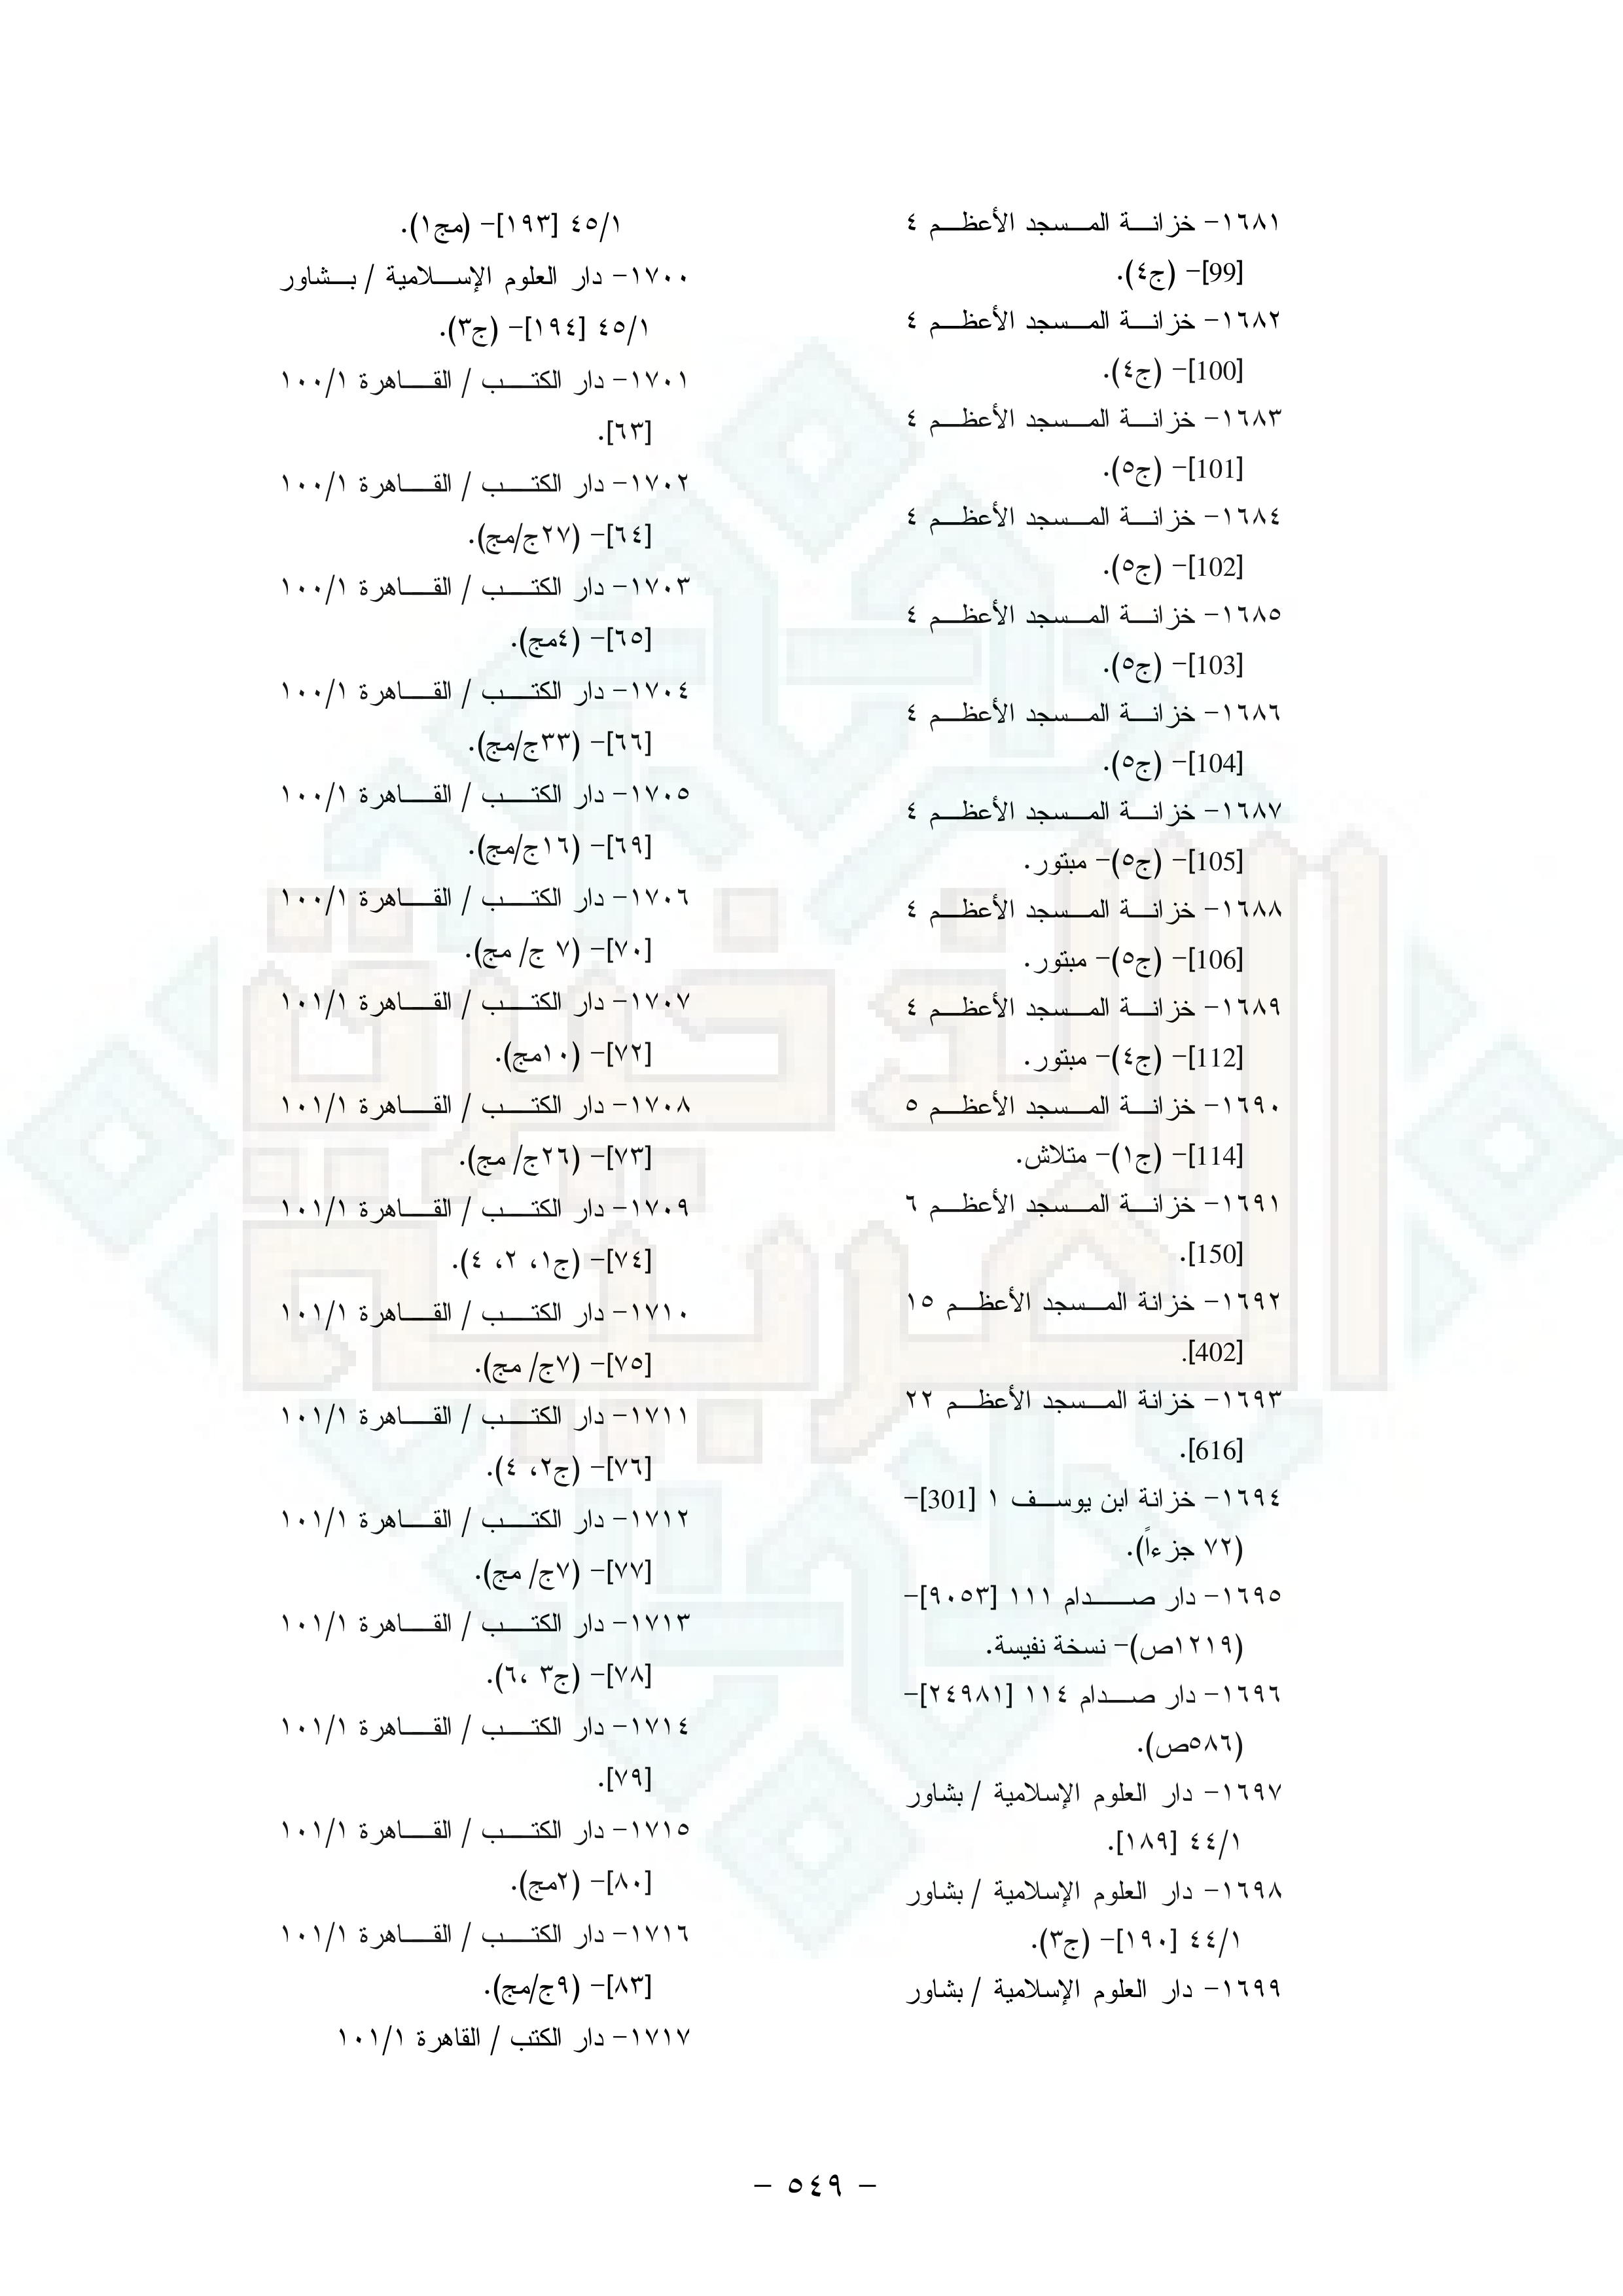 ١٦٨١- خزانة المسجد الأعظم ٤
[99]- (ج٤).
١٦٨٢- خزانة المسجد الأعظم ٤
[100]- (ج٤).
١٦٨٣- خزانة المسجد الأعظم ٤
[101]- (ج٥).
١٦٨٤- خزانة المسجد الأعظم ٤
[102]- (ج٥).
١٦٨٥- خزانة المسجد الأعظم ٤
[103]- (ج٥).
١٦٨٦- خزانة المسجد الأعظم ٤
[104]- (ج٥).
١٦٨٧- خزانة المسجد الأعظم ٤
[105]- (ج٥)- مبتور.
١٦٨٨- خزانة المسجد الأعظم ٤
[106]- (ج٥)- مبتور.
١٦٨٩- خزانة المسجد الأعظم ٤
[112]- (ج٤)- مبتور.
١٦٩٠- خزانة المسجد الأعظم ٥
[114]- (ج١)- متلاش.
١٦٩١- خزانة المسجد الأعظم ٦
[150].
١٦٩٢- خزانة المسجد الأعظم ١٥
[402].
١٦٩٣- خزانة المسجد الأعظم ٢٢
[616].
١٦٩٤- خزانة ابن يوسف ١ [301]-
(٧٢ جزءاً).
١٦٩٥- دار صدام ١١١ [٩٠٥٣]-
(١٢١٩ص)- نسخة نفيسة.
١٦٩٦- دار صدام ١١٤ [٢٤٩٨١]-
(٥٨٦ص).
١٦٩٧- دار العلوم الإسلامية / بشاور
٤٤/١ [١٨٩].
١٦٩٨- دار العلوم الإسلامية / بشاور
٤٤/١ [١٩٠]- (ج٣).
١٦٩٩- دار العلوم الإسلامية / بشاور
٤٥/١ [١٩٣]- (مج١).
١٧٠٠- دار العلوم الإسلامية / بشاور
٤٥/١ [١٩٤]- (ج٣).
١٧٠١- دار الكتب / القاهرة ١٠٠/١
[٦٣].
١٧٠٢- دار الكتب / القاهرة ١٠٠/١
[٦٤]- (٢٧ج/مج).
١٧٠٣- دار الكتب / القاهرة ١٠٠/١
[٦٥]- (٤مج).
١٧٠٤- دار الكتب / القاهرة ١٠٠/١
[٦٦]- (٣٣ج/مج).
١٧٠٥- دار الكتب / القاهرة ١٠٠/١
[٦٩]- (١٦ج/مج).
١٧٠٦- دار الكتب / القاهرة ١٠٠/١
[٧٠]- (٧ ج/ مج).
١٧٠٧- دار الكتب / القاهرة ١٠١/١
[٧٢]- (١٠مج).
١٧٠٨- دار الكتب / القاهرة ١٠١/١
[٧٣]- (٢٦ج/ مج).
١٧٠٩- دار الكتب / القاهرة ١٠١/١
[٧٤]- (ج١، ٢، ٤).
١٧١٠- دار الكتب / القاهرة ١٠١/١
[٧٥]- (٧ج/ مج).
١٧١١- دار الكتب / القاهرة ١٠١/١
[٧٦]- (ج٢، ٤).
١٧١٢- دار الكتب / القاهرة ١٠١/١
[٧٧]- (٧ج/ مج).
١٧١٣- دار الكتب / القاهرة ١٠١/١
[٧٨]- (ج٣ ،٦).
١٧١٤- دار الكتب / القاهرة ١٠١/١
[٧٩].
١٧١٥- دار الكتب / القاهرة ١٠١/١
[٨٠]- (٢مج).
١٧١٦- دار الكتب / القاهرة ١٠١/١
[٨٣]- (٩ج/مج).
١٧١٧- دار الكتب / القاهرة ١٠١/١
- ٥٤٩ -